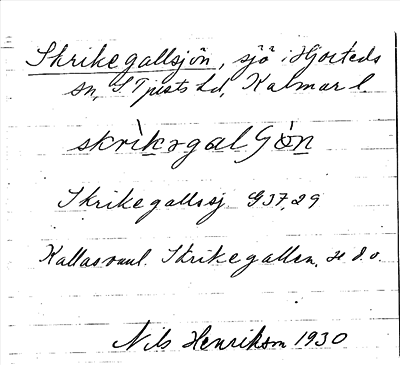 Skrikegallsjön, sjö i Hjorteds
sn, S Tjusts hd, Kalmar l.
skrìkəgalʃö̀n
Skrikegallssj G37, 29
Kallas vanl. Skrikegallen,
Nils Henrikson 1930